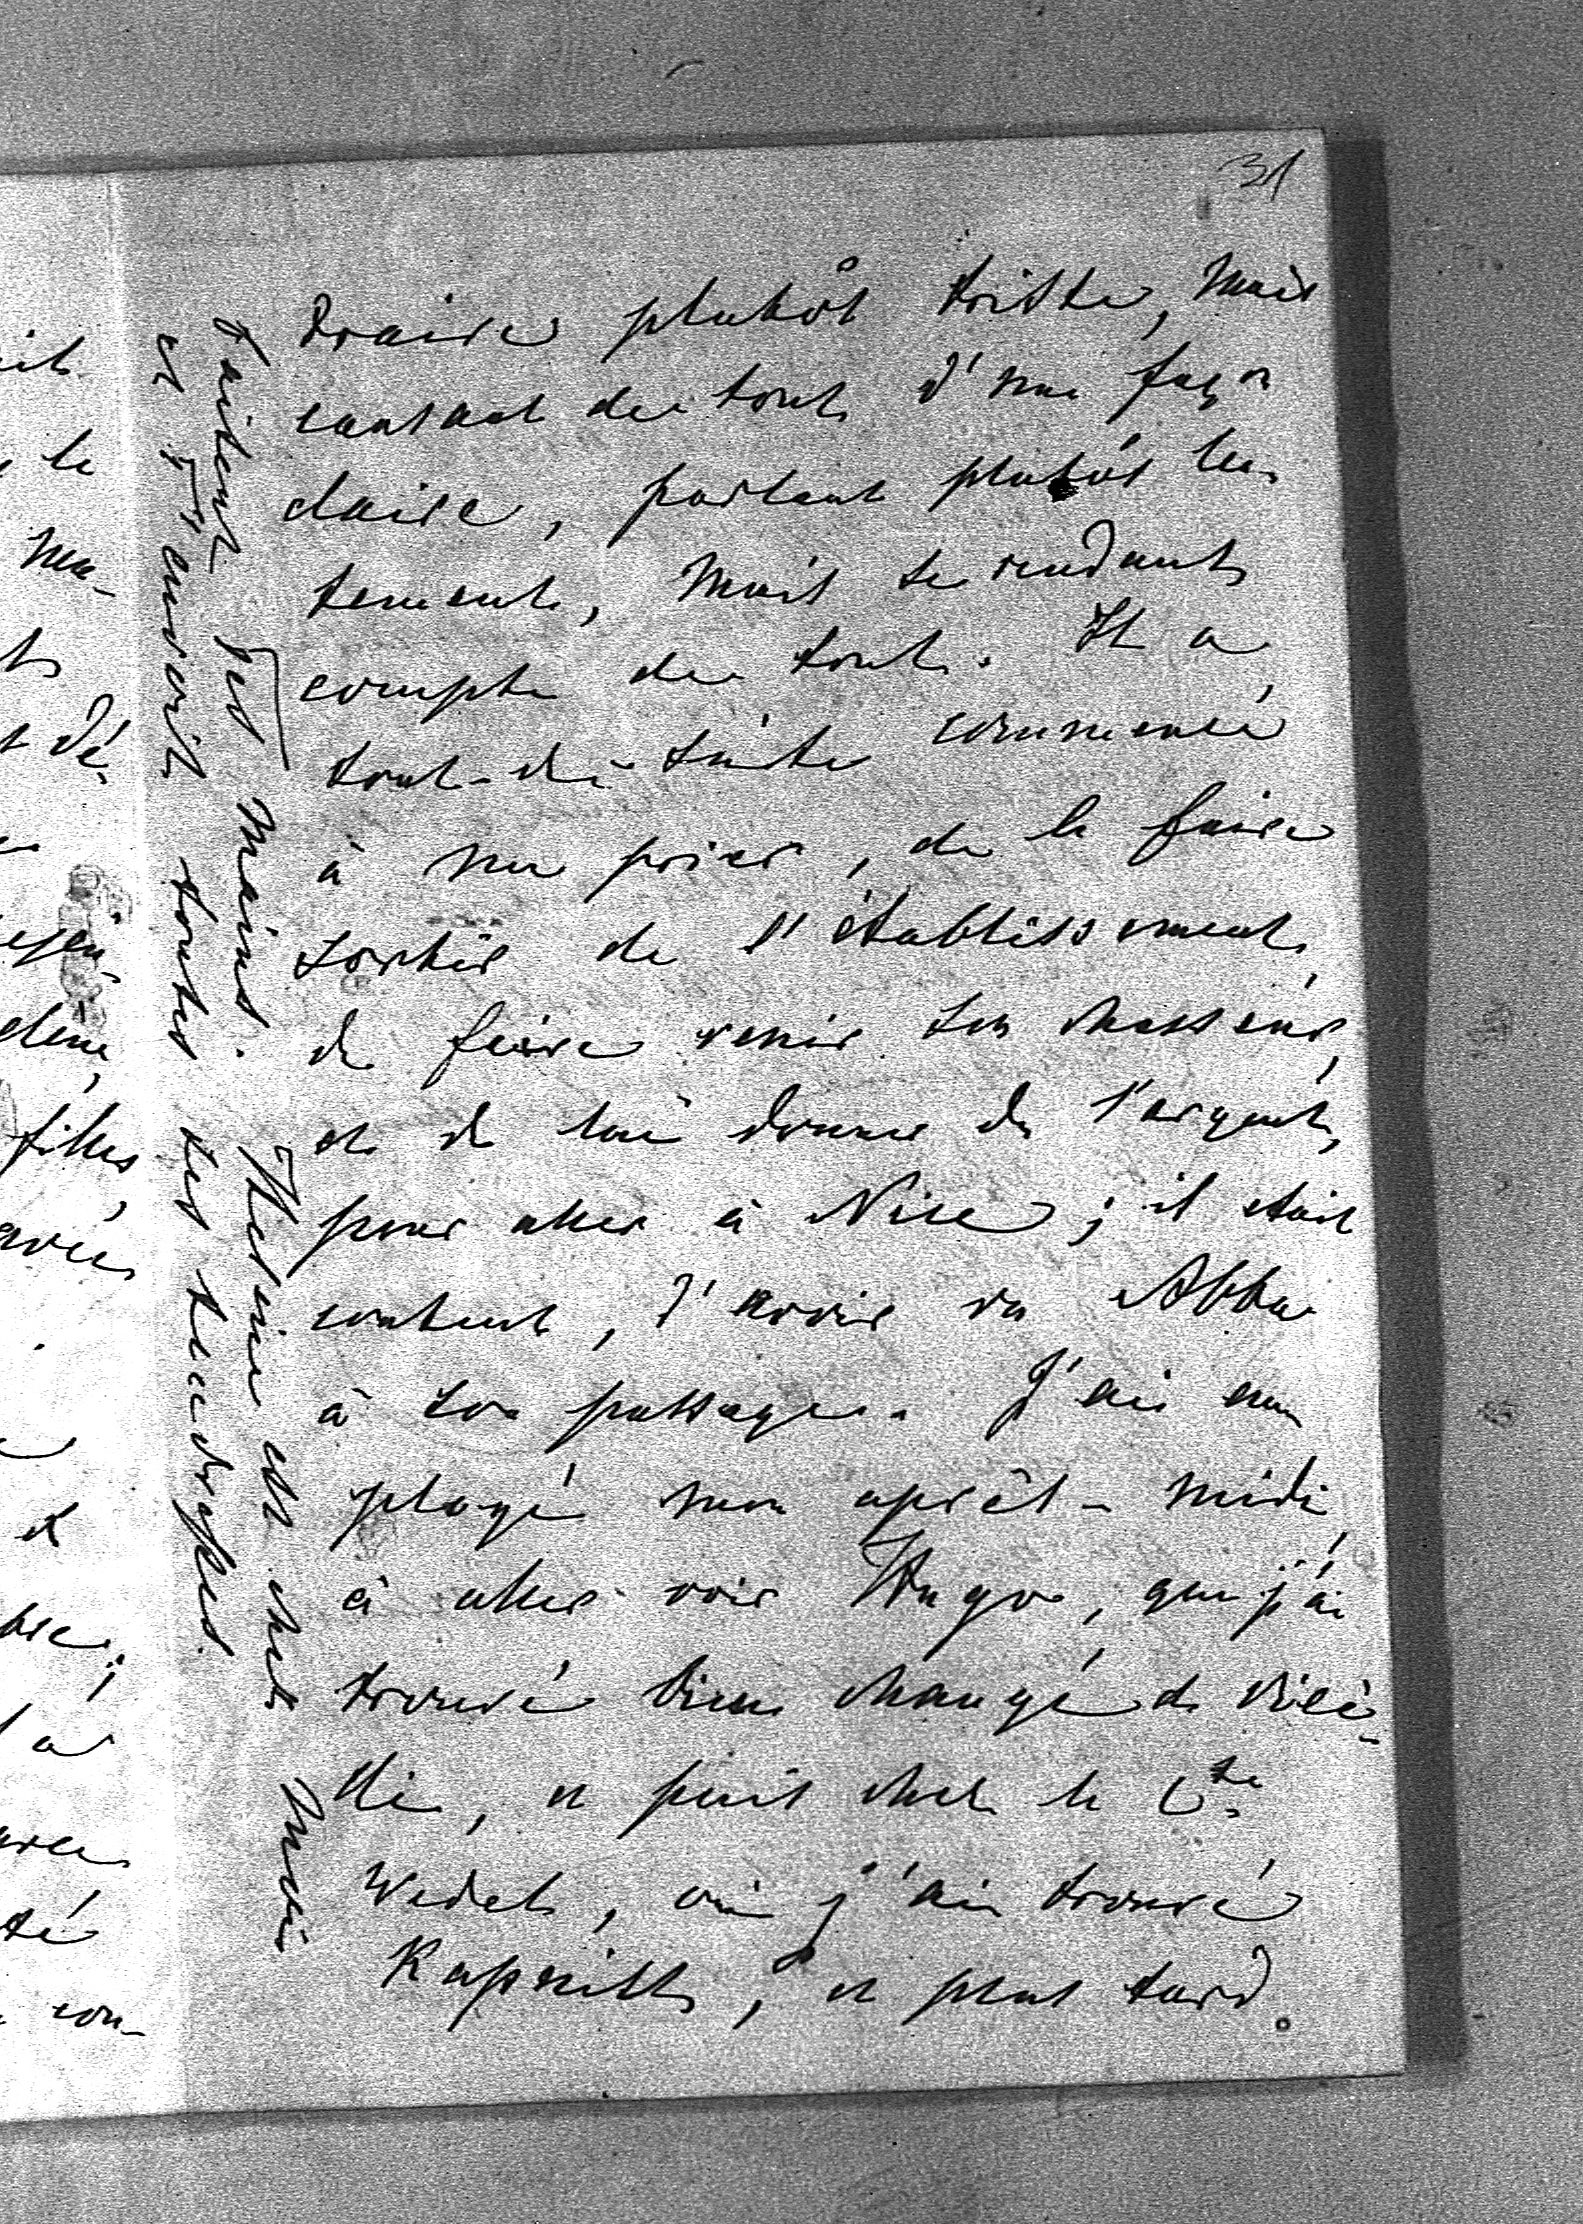 31
traire plutôt triste, mais
causant de tout d'une façon
claire, parlant plutôt len
tement, mais se rendant
compte de tout. Il a
tout-de-suite commencé
à me prier, de le faire
sortir de l'établissement,
de faire venir son chasseur,
et de lui donner de l'argent,
pour aller à Nice; il était
content, d'avoir vu Abba
à son passage. J'ai em
ployé mon après-midi,
à aller voir Hugo, que j'ai
trouvé bien changé et viei-
lli, et puis chez le Cte
Wedel, où j'ai trouvé
Kapnist, et plus tard.
baisent les mains. Hermine est chez moi
et Vous envoit toutes ses tendresses.
it
le
Ma-
dé-
filles,
avec
et
la
avec
té
con-